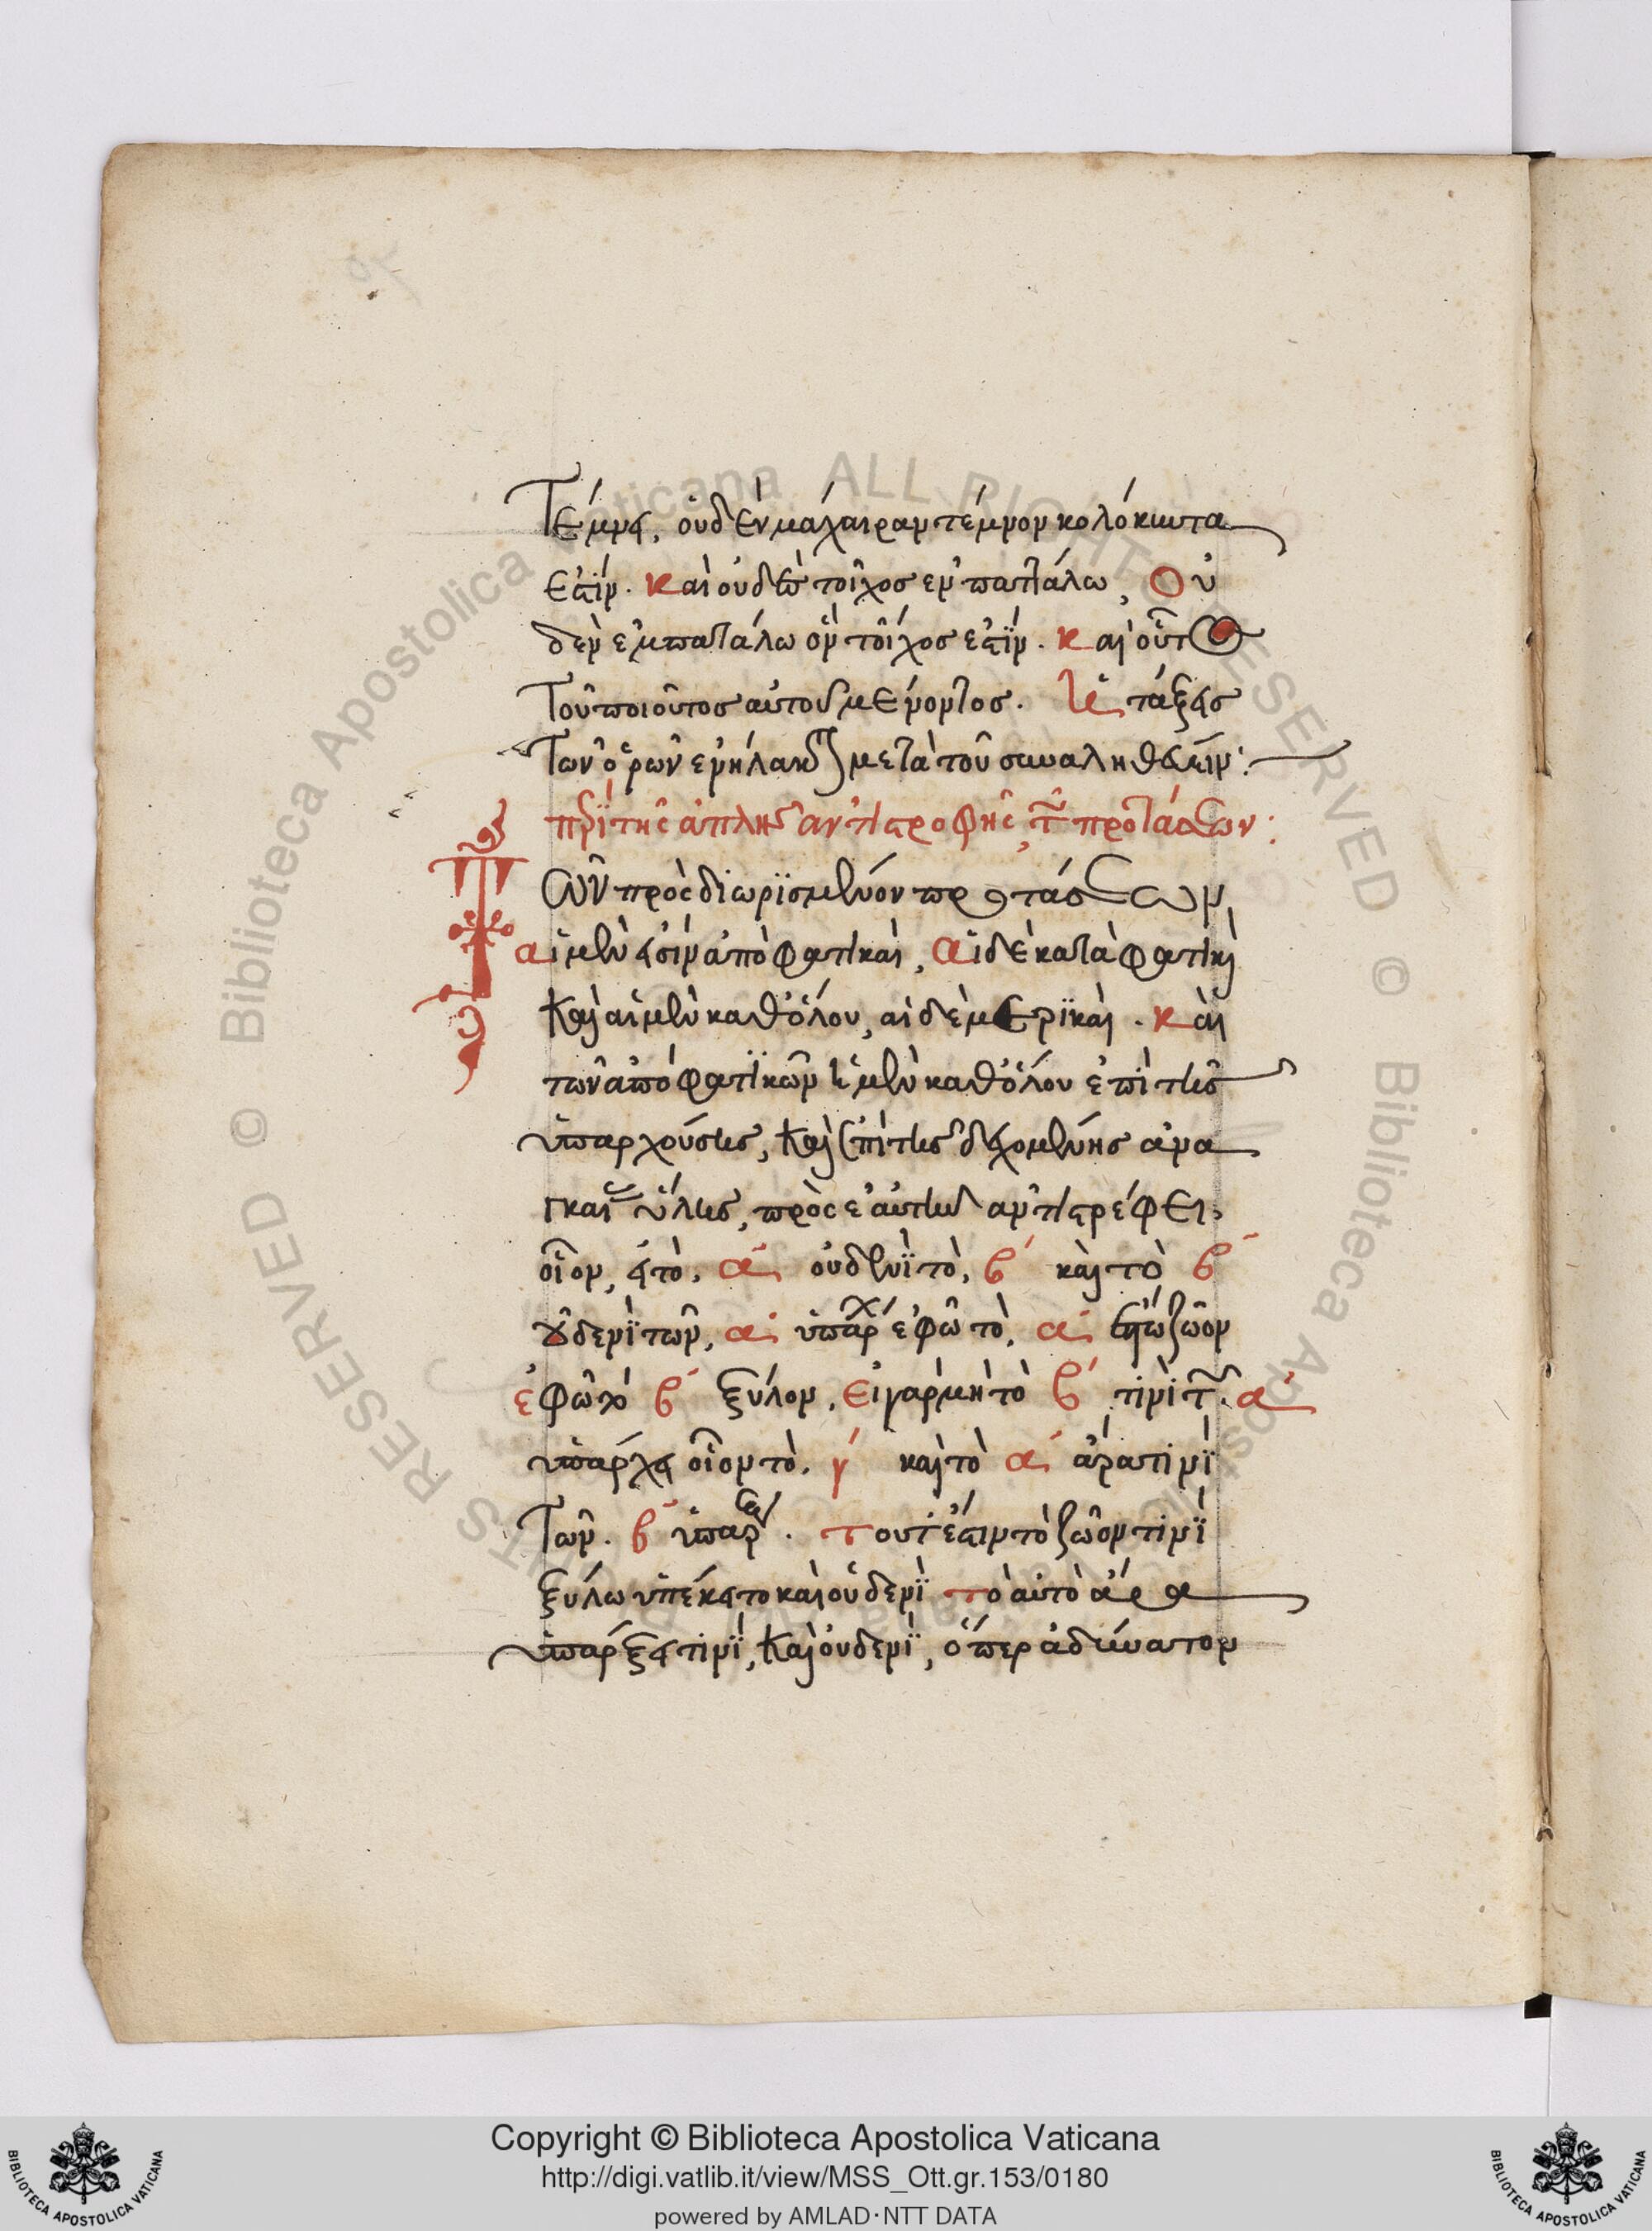 τέμνει, οὐδὲν μάχαιραν τέμνον κολόκιντα
ἐστίν. καὶ οὐδεὶς τοῖχος ἐν παττάλω, Οὐ
δὲν ἐμπαττάλω ὂν τοῖχος ἐστϊν. καὶ οὕτω
τοῦ ποιοῦτος αὐτοῦ μένοντος. ἡ τάξεις
τῶν ὅρων ἐνήλακται μετὰ τοῦ συναληθεύειν:
περὶ τῆς ἁπλῆς ἀντιστροφῆς, τῶν προτάσεων:
Τῶν προσδιωρϊσμένον προτάσεων,
αἱ μὲν εἰσὶν ἀποφατικαὶ, Αἱ δὲ καταφατικαὶ
καὶ αἱ μὲν καθόλου, αἱ δὲ μερϊκαὶ. καὶ
τῶν ἀποφατϊκῶν ἡ μὲν καθόλου ἐπὶ τῆς
ὑπαρχούσης, καὶ ἐπὶ τῆς δεχομένης ἀνα
γκαί ὕλης, πρὸς ἑαυτὴν ἀντιστρέφει,
οἷον, εἰ τὸ, α οὐδενῒ τὸ, β καὶ τὸ β
οὐδενῒ τῶν, α ὑπάρχ ἐφῶ τὸ, α ζῶον
ἐφῶ τὸ β ξύλον, εἰ γὰρ μὴ τὸ β τινὶ τῶν α
ὑπάρχει οἷον τὸ, γ καὶ τὸ α ἄρα τινῒ
τῶν. β ὑπάρξει. τουτέστιν τὸ ζῶον τινῒ
ξύλω ὑπέκειτο καὶ οὐδενῒ τὸ αὐτὸ ἄρα
ὑπάρξει τινῒ, καὶ οὐδενῒ, ὅπερ ἀδύνατον
Copyright © Biblioteca Apostolica Vaticana
http://digi.vatlib.it/view/MSS_Ott.gr.153/0180
powered by AMLAD·NTT DATA